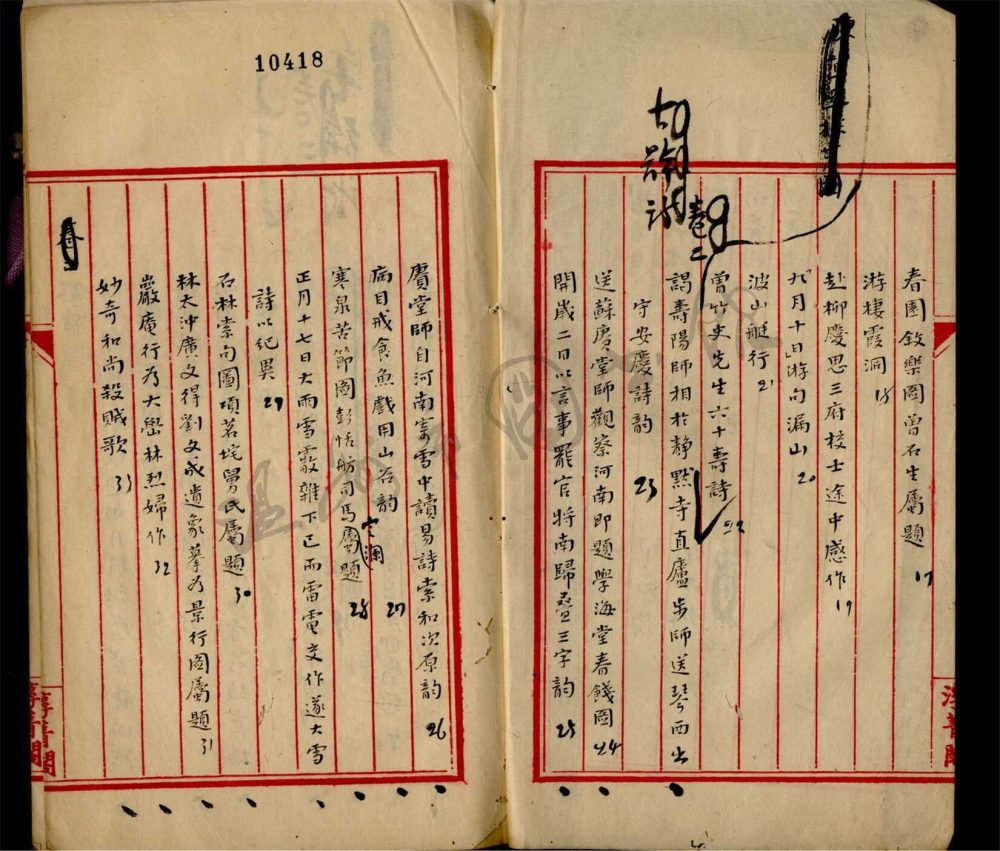 春園敘樂圖曾石生屬題 17
游棲霞洞 18
赴柳慶思三府校士途中感作 19
九月十日游句漏山 20
波山艇行 21
卷二
曾竹史先生六十壽詩 22
謁壽陽師相於靜默寺直廬步師送琴西出
守安慶詩韵 23
送蘇賡堂師觀察河南即題學海堂春餞圖 24
開歲二日以言事罷官將南歸疊三字韵 25
賡堂師自河南寄雪中讀易詩索和次原韵 26
病目戒食魚戲用山谷韵 27
寒泉苦節圖彭恬舫司馬屬題 28
正月十七日大雨雪霰雜下已而雷電交作遂大雪
詩以紀異 29
石林索句圖項茗垞舅氏屬題 30
林太沖廣文得劉文成遺象摹為景行圖屬題 31
巖庵行為大嶨林烈婦作 32
妙奇和尚殺賊歌 33
10418